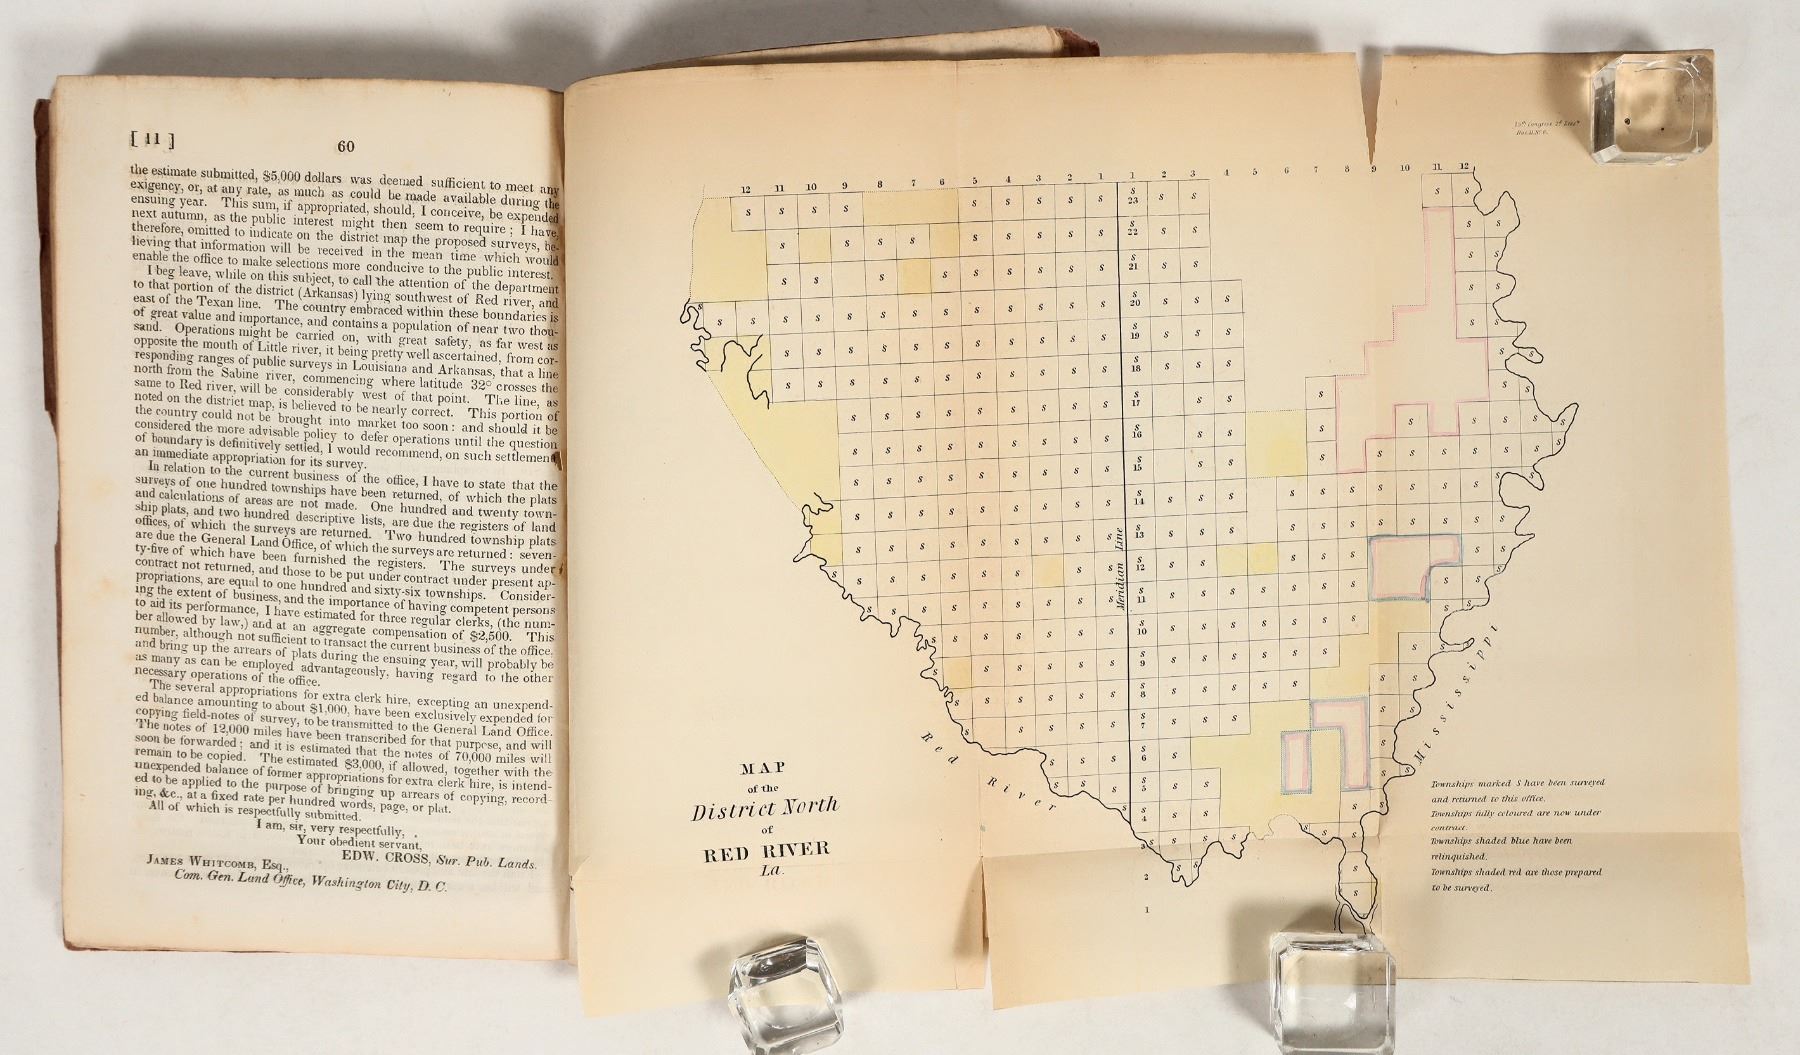 [ 11 ]
60
the estimate submitted, $5,000 dollars was deemed sufficient to meet any
exigency, or, at any rate, as much as could be made available during the
ensuing year. This sum, if appropriated, should, I conceive, be expended
next autumn, as the public interest might then seem to require; I have,
therefore, omitted to indicate on the district map the proposed surveys, be-
lieving that information will be received in the mean time which would
enable the office to make selections more conducive to the public interest.
I beg leave, while on this subject, to call the attention of the department
to that portion of the district (Arkansas) lying southwest of Red river, and
east of the Texan line. The country embraced within these boundaries is
of great value and importance, and contains a population of near two thou-
sand. Operations might be carried on, with great safety, as far west as
opposite the mouth of Little river, it being pretty well ascertained, from cor-
responding ranges of public surveys in Louisiana and Arkansas, that a line
north from the Sabine river, commencing where latitude 32° crosses the
same to Red river, will be considerably west of that point. The line, as
noted on the district map, is believed to be nearly correct. This portion of
the country could not be brought into market too soon: and should it be
considered the more advisable policy to defer operations until the question
of boundary is definitively settled, I would recommend, on such settlement
an immediate appropriation for its survey.
In relation to the current business of the office, I have to state that the
surveys of one hundred townships have been returned, of which the plats
and calculations of areas are not made. One hundred and twenty town-
ship plats, and two hundred descriptive lists, are due the registers of land
offices, of which the surveys are returned. Two hundred township plats
are due the General Land Office, of which the surveys are returned: seven-
ty-five of which have been furnished the registers. The surveys under
contract not returned, and those to be put under contract under present ap-
propriations, are equal to one hundred and sixty-six townships. Consider-
ing the extent of business, and the importance of having competent persons
to aid its performance, I have estimated for three regular clerks, (the num-
ber allowed by law,) and at an aggregate compensation of $2,500. This
number, although not sufficient to transact the current business of the office,
and bring up the arrears of plats during the ensuing year, will probably be
as many as can be employed advantageously, having regard to the other
necessary operations of the office.
The several appropriations for extra clerk hire, excepting an unexpend-
ed balance amounting to about $1,000, have been exclusively expended for
copying field-notes of survey, to be transmitted to the General Land Office.
The notes of 12,000 miles have been transcribed for that purpose, and will
soon be forwarded; and it is estimated that the notes of 70,000 miles will
remain to be copied. The estimated $3,000, if allowed, together with the
unexpended balance of former appropriations for extra clerk hire, is intend-
ed to be applied to the purpose of bringing up arrears of copying, record-
ing, &c., at a fixed rate per hundred words, page, or plat.
All of which is respectfully submitted.
I am, sir, very respectfully,
Your obedient servant,
EDW. CROSS, Sur. Pub. Lands.
JAMES WHITCOMB, Esq.,
Com. Gen. Land Office, Washington City, D. C.
12 11 10 9 8 7 6 5 4 3 2 1 1 2 3 4 5 6 7 8 9 10 11 12
23
22
21
20
19
18
17
16
15
14
13
12
11
10
9
8
7
6
5
4
3
2
1
Meridian Line
Red River
Mississippi
MAP
of the
District North
of
RED RIVER
La.
Townships marked S have been surveyed
and returned to this office.
Townships fully coloured are now under
contract.
Townships shaded blue have been
relinquished.
Townships shaded red are those prepared
to be surveyed.